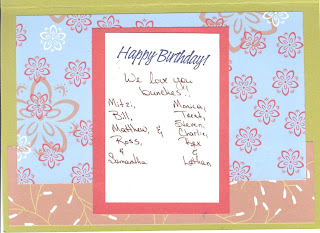 Happy Birthday!
We love you
bunches!!
Mitzi,
Bill,
Matthew, &
Ross,
&
Samantha
Monica,
Trent,
Steven,
Charlie,
Trex
&
Lathan